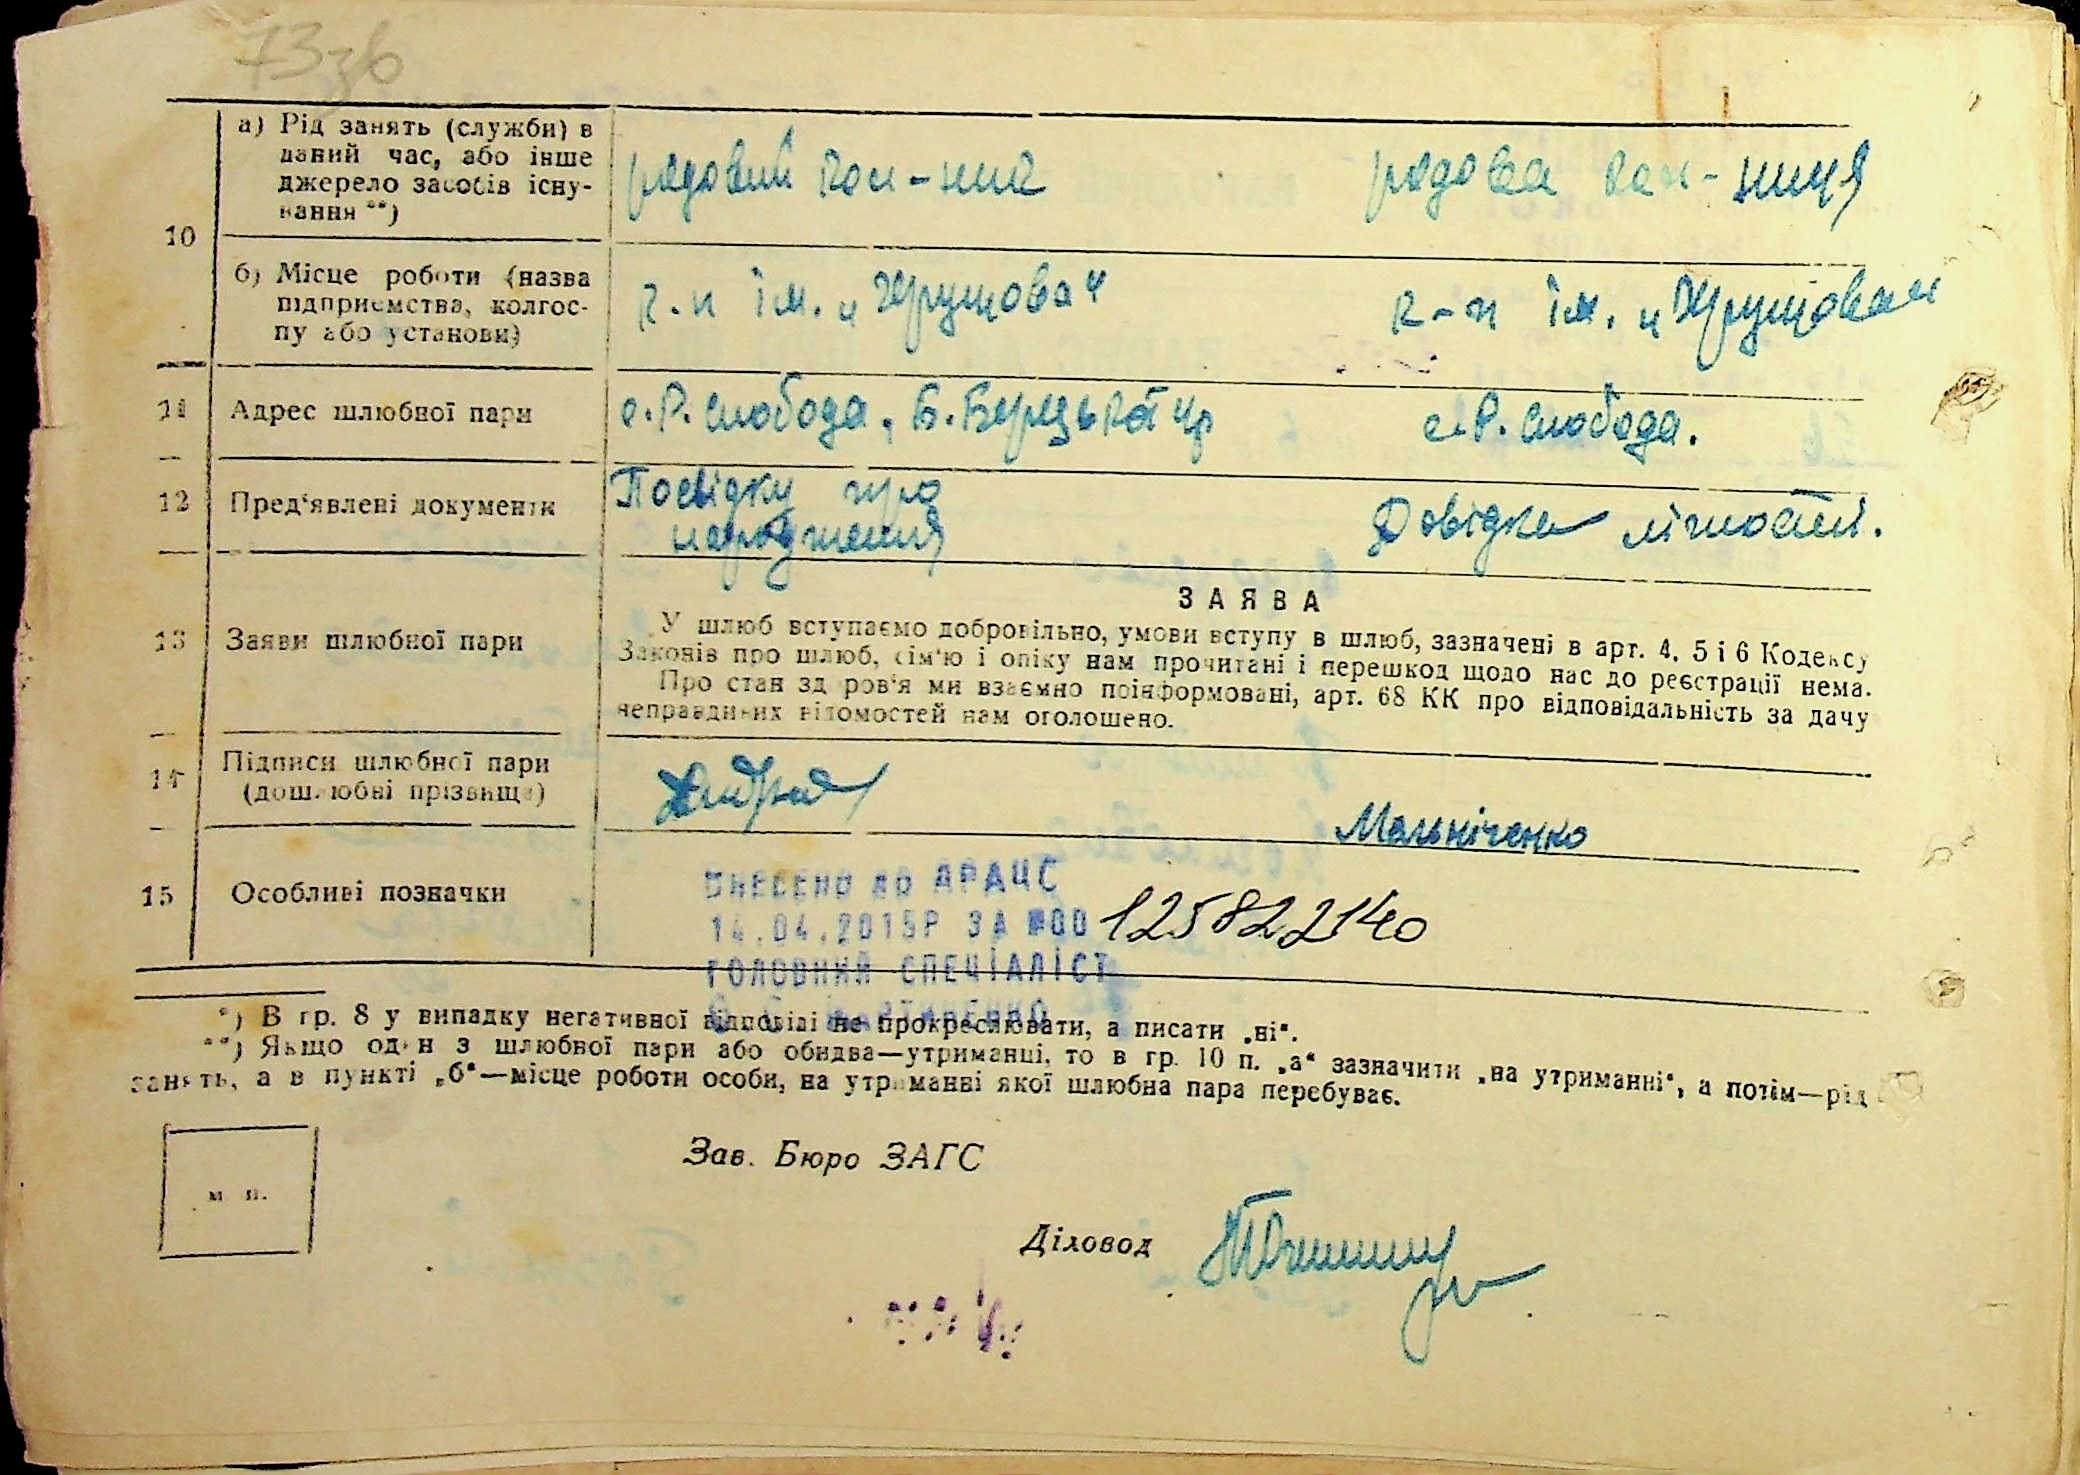 73зв
а) Рід занять (служби) в
даний час, або інше
джерело засобів існу-
вання **)
рядовий кол-ник
рядова кол-ниця
10
б) Місце роботи (назва
підприємства, колгос-
пу або установи)
к-п ім. „Хрущова"
к-п ім. „Хрущова"
11 Адрес шлюбної пари
с. Р. Слобода,
с. Р. Слобода.
12 Пред'явлені документи
Посвідку про
народження
Довідка
13 Заяви шлюбної пари
ЗАЯВА
У шлюб вступаємо добровільно, умови вступу в шлюб, зазначені в арт. 4, 5 і 6 Кодексу
Законів про шлюб, сім'ю і опіку нам прочитані і перешкод щодо нас до реєстрації нема.
Про стан здоров'я ми взаємно поінформовані, арт. 68 КК про відповідальність за дачу
неправдивих відомостей нам оголошено.
14 Підписи шлюбної пари
(дошлюбні прізвища)
Мальніченко
15 Особливі позначки
ВНЕСЕНО ДО ДРАЦС
14.04.2015Р ЗА №00 125822140
ГОЛОВНИЙ СПЕЦІАЛІСТ
МАРТИНЕНКО
*) В гр. 8 у випадку негативної відповіді не прокреслювати, а писати „ні".
**) Якщо один з шлюбної пари або обидва—утриманці, то в гр. 10 п. „а" зазначити „на утриманні", а потім—рід
занять, а в пункті „б"—місце роботи особи, на утриманні якої шлюбна пара перебуває.
м п.
Зав. Бюро ЗАГС
Діловод